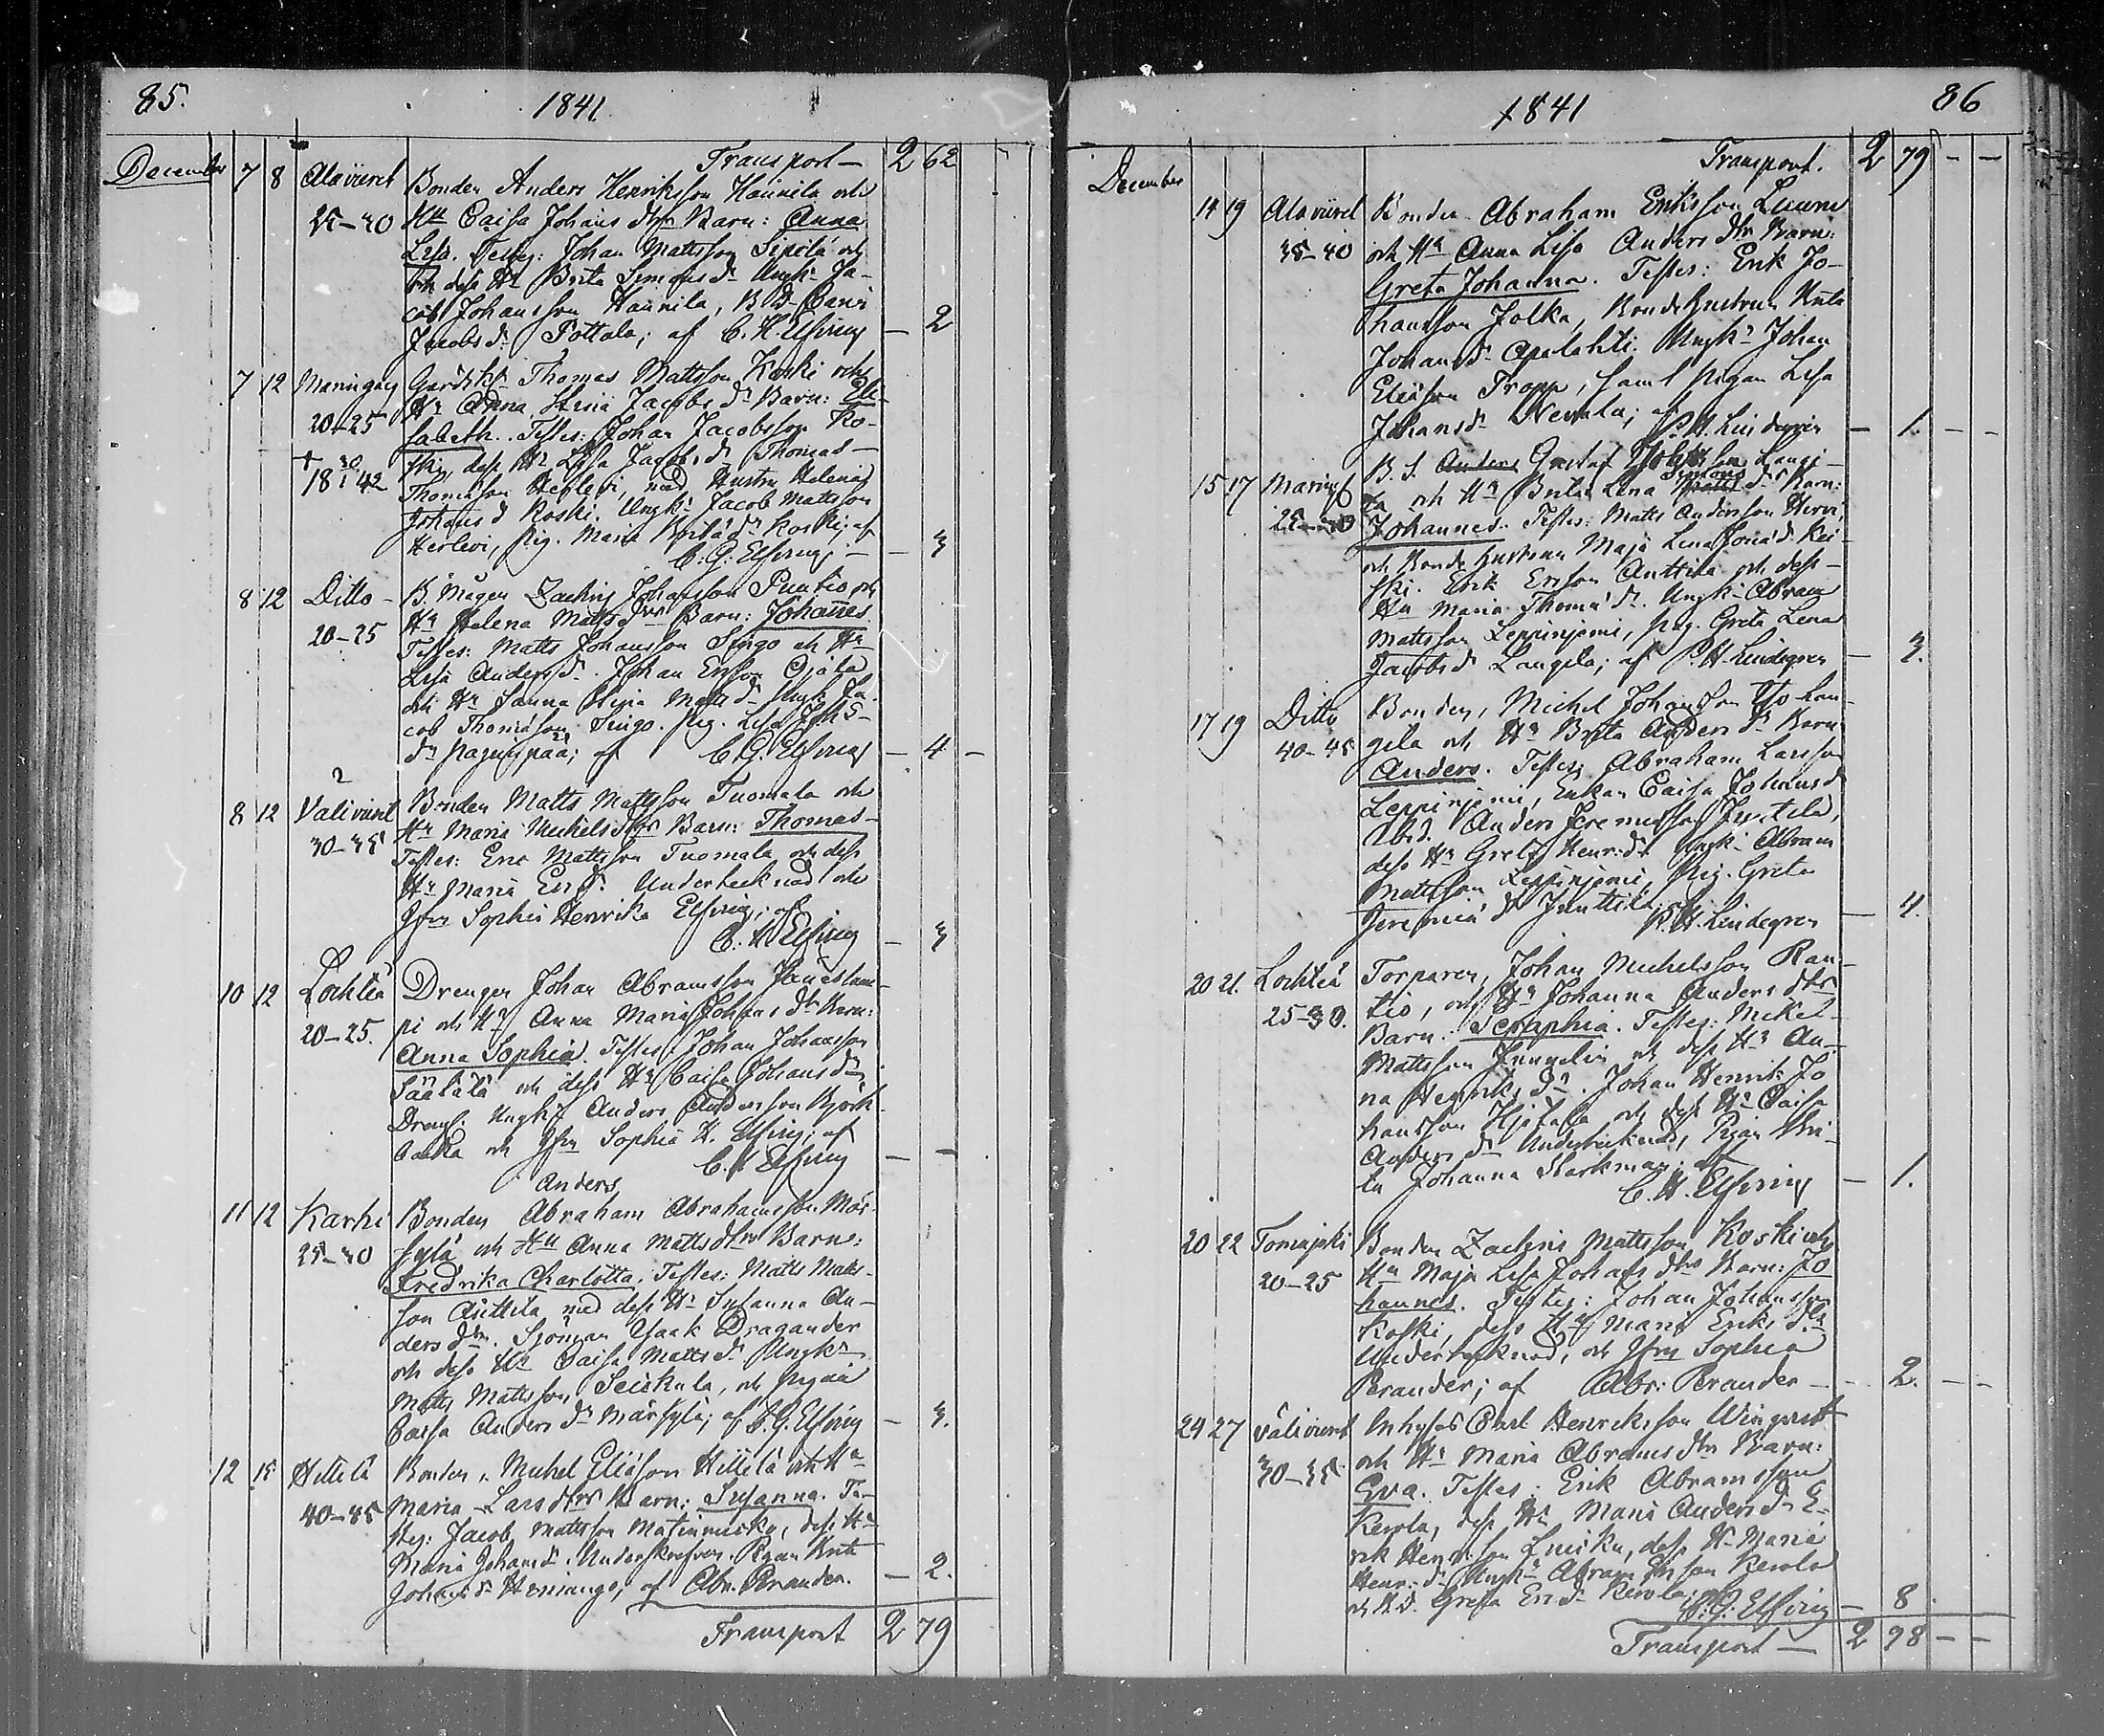 85.
1841
Transport — 2 62
December 7 8 Alaviiret Bonden Anders Henriksson Hannila och
25-30 Hu Caisa Johans dtr Barn: Anna
Lisa. Testes: Johan Mattsson Sipilä och
dess Hu Brita Simons dr Ungk. Ja-
cob Johansson Hannila, B. D. Carin
Jacobs dr Pottala; af C. H. Elfving — 2
7 12 Maringais Gårdsk. Thomas Mattsson Koski och
Hu Anna Stina Jacobs dr Barn: Eli-
20-25 sabeth. Testes: Johan Jacobsson Ko-
ski, dess Hu Lisa Jacobs dr Thomas
† 18 30/1 42 Thomasson Herlevi, med Hustru Helena
Johans d Koski. Ungk. Jacob Mattsson
Herlevi, pig. Maria dr Koski; af
C. G. Elfving — 3
8 12 Ditto B. Mågen Zachris Johansson Puntio och
20-25 Hu Helena Matts dtr Barn: Johannes
Testes: Matts Johansson Singo och Hu
Lisa Anders dr. Johan Ersson Ojala
och Hu Sanna Stina Matts dr Ungk. Ja-
cob Thomasson Singo. Pig. Lisa Joh s
dr af C. G. Elfving — 4 —
2
8 12 Väliviiret Bonden Matts Mattsson Tuomala och
30-35 Hu Maria Michels dtr Barn: Thomas
Testes: Eric Mattsson Tuomala och dess
Hu Maria Ers d. Undertecknad och
Jfru Sophia Henrika Elfving; af
C. H. Elfving — 3
10 12 Lochteå Drengen Johan Abramsson Jäneslam-
pi och Hu Anna Maria Johans dtr Barn:
20-25. Anna Sophia. Testes: Johan Johansson
Säätälä och dess Hu Caisa Johans dr
Dreng. Ungk. Anders Andersson Björk-
backa och Jfru Sophia H. Elfving; af
C. H. Elfving — —
Anders
11 12 Karhi Bonden Abraham Abrahamsson Mär-
25-30 sylä och Hu Anna Matts dtr Barn:
Fredrika Charlotta. Testes: Matts Matts-
son Anttila med dess Hu Susanna An-
ders dtr. Sjöman Isaak Dragander
och dess Hu Caisa Matts dr Ungk.
Matts Mattsson Seiskula, och pigan
Caisa Anders dr Märsylä; af C. G. Elfving — 3.
12 15 Hillilä Bonden Michel Eliasson Hillilä och Hu
40-45 Maria Lars dtr Barn: Susanna. Te-
stes: Jacob Mattsson Matinmicko, dess Hu
Maria Johans d. Underskrefven. Pigan Brita
Johans dr Heniango; af Abr. Perander. — 2.
Transport 2 79
86
1841
Transport. 2 79 — —
December 14 19 Alaviiret Bonden Abraham Eriksson Luume
35-40 och Hu Anna Lisa Anders dtr Barn:
Greta Johanna. Testes: Erik Jo-
hansson Jolka, Bondehustrun
Johans d Ungk. Johan
Eliasson Tropp, samt pigan Lisa
Johans d Nevala; af P. H. Lindegren — 1. — —
15 17 Maring. B. S. Anders Gustaf Langi-
la och Hu Brita Lena Simons Matts dr Barn:
25-30 Johannes. Testes: Matts Andersson Hirvi,
och Bondehustrun Maja Lena dr Kei-
ski. Erik Ersson Anttila och dess
Hu Maria Thoma dr. Ungk. Abram
Mattsson Leppinjemi, pig. Greta Lena
Jacobs d Langila; af P. H. Lindegren — 3.
17 19 Ditto Bonden, Michel Johansson Yto Lan-
gila och Hu Brita Anders dr Barn
40-45 Anders. Testes: Abraham Larsson
Leppinjemi, Enkan Caisa Johans d
Ibid. Anders Jeremiasson Junttila,
dess Hu Greta Henr: dr Ungk. Abram
Mattsson Leppinjemi, Pig. Greta
Jeremia dr Junttila; af P. H. Lindegren — 4.
20 21. Lochteå Torparen, Johan Michelsson Ran-
25-30. tio, och Hu Johanna Anders dtr
Barn: Seraphia. Testes: Mickel
Mattsson Jungelin och dess Hu An-
na Henriks dr. Johan Henrik Jo
hansson Hjetala och dess Hu Caisa
Anders dr Undertecknad, Pigan Bri-
ta Johanna Starkman; af
C. H. Elfving — 1.
20 22 Tomujoki Bonden Zachris Mattsson Koski och
20-25 Hu Maja Lisa Johans dtr Barn: Jo
hannes. Testes: Johan Johansson
Koski, dess Hu Maria Eriks dtr
Undertecknad, och Jfru Sophia
Perander; af Abr: Perander — 2. — —
24 27 Väliviiret Inhyses Carl Henriksson Winqvist
och Hu Maria Abrams dtr Barn:
30-35 Eva. Testes: Erik Abramsson
Kerola, dess Hu Maria Anders dr E-
rik Henr: son dess Hu Maria
Henr: dr Ungk. Abram Ersson Kerola
och B. D. Greta Ers dr Kerola; af C. G. Elfving — 8.
Transport — 2 98 — —